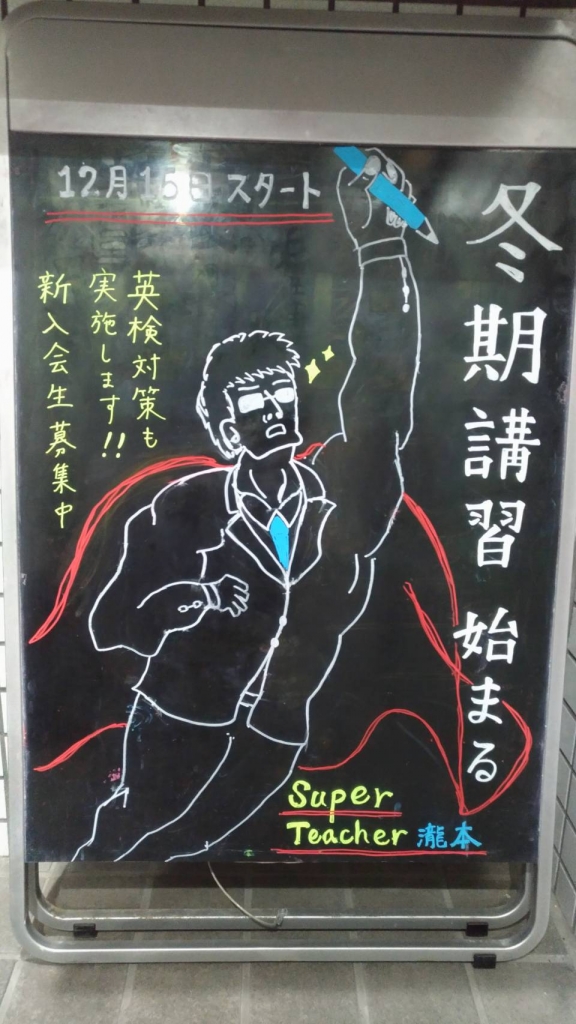 冬期講習 始まる
12月15日 スタート
英検対策も
実施します!!
新入会生募集中
Super
Teacher 瀧本